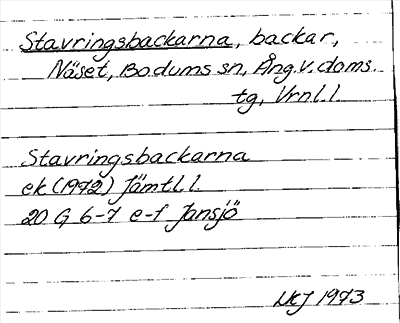 Stavringsbackarna, backar,
Näset, Bodums sn, Ång.v.doms.
tg, Vrnl.l.
Stavringsbackarna
ek (1972) Jämtl.l.
20 G 6-7 e-f Jansjö
1973